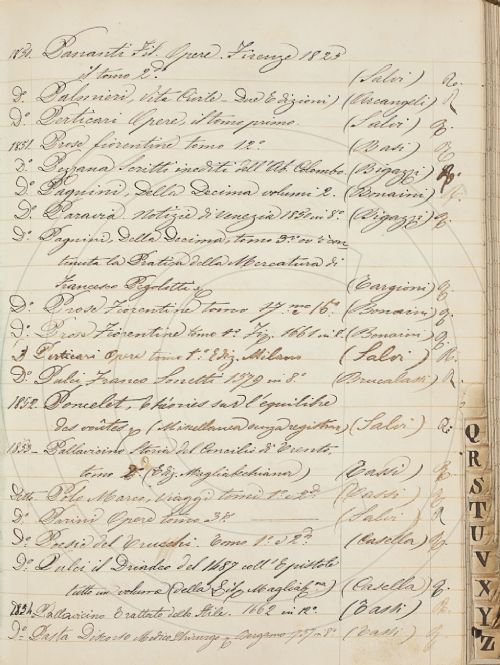 1830. Pananti Fil. Opere. Firenze 1825
il tomo 2.° (Salvi) R.
D.° Palmieri, Vita Civile Due Edizioni) (Arcangeli) R
D.° Perticari Opere, il tomo primo. (Salvi) R.
1831. Prose fiorentine tomo 12.° (Basi) R.
D.° Pezzana Scritti inediti all'Ab. Colombo. (Bigazzi) R.
D.° Pagnini, Della Decima volumi 2. (Bonaini) R.
D.° Paravia Notizie di Venezia 1830 in 8.° (Bigazzi) R.
D.° Pagnini, Della Decima, tomo 3.° ov'è con
tenuta la Pratica della Mercatura di
Francesco Pegolotti (Targioni) R.
D.° Prose Fiorentine tomo 17.mo e 16.° (Bonaini) R.
D.° Prose Fiorentine tomo 1.° Fir. 1661 in 8. (Bonaini) R.
D.° Perticari Opere tomo 1.° Ediz. Milano (Salvi) R.
D.° Pulci Franco Sonetti 1579 in 8.° (Brucalassi) R.
1832. Poncelet, Théories sur l'équilibre
des voûtes (Miscellanea senza registro) (Salvi) R.
1833. Pallavicino Storia del Concilio di Trento.
tomo 2.° (Ediz. Magliabechiana) (Tassi) R.
Detto Polo Marco, Viaggi tomi 1.° e 2.° (Tassi) R.
D.° Parini Opere tomo 3.° (Salvi) R
D.° Poesie del tomo 1.° e 2.° (Casella) R.
D.° Pulci il Driadeo del 1487 coll'Epistole
tutto in volume (della Lib. Magliab.na) (Casella) R.
1834. Pallavicino Trattato dello Stile. 1662 in 12.° (Tassi) R.
D.° Pasta Discorso Medico Chirurgo Bergamo in 8.° (Tassi) R.
Q
R
S
T
U
V
X
Y
Z